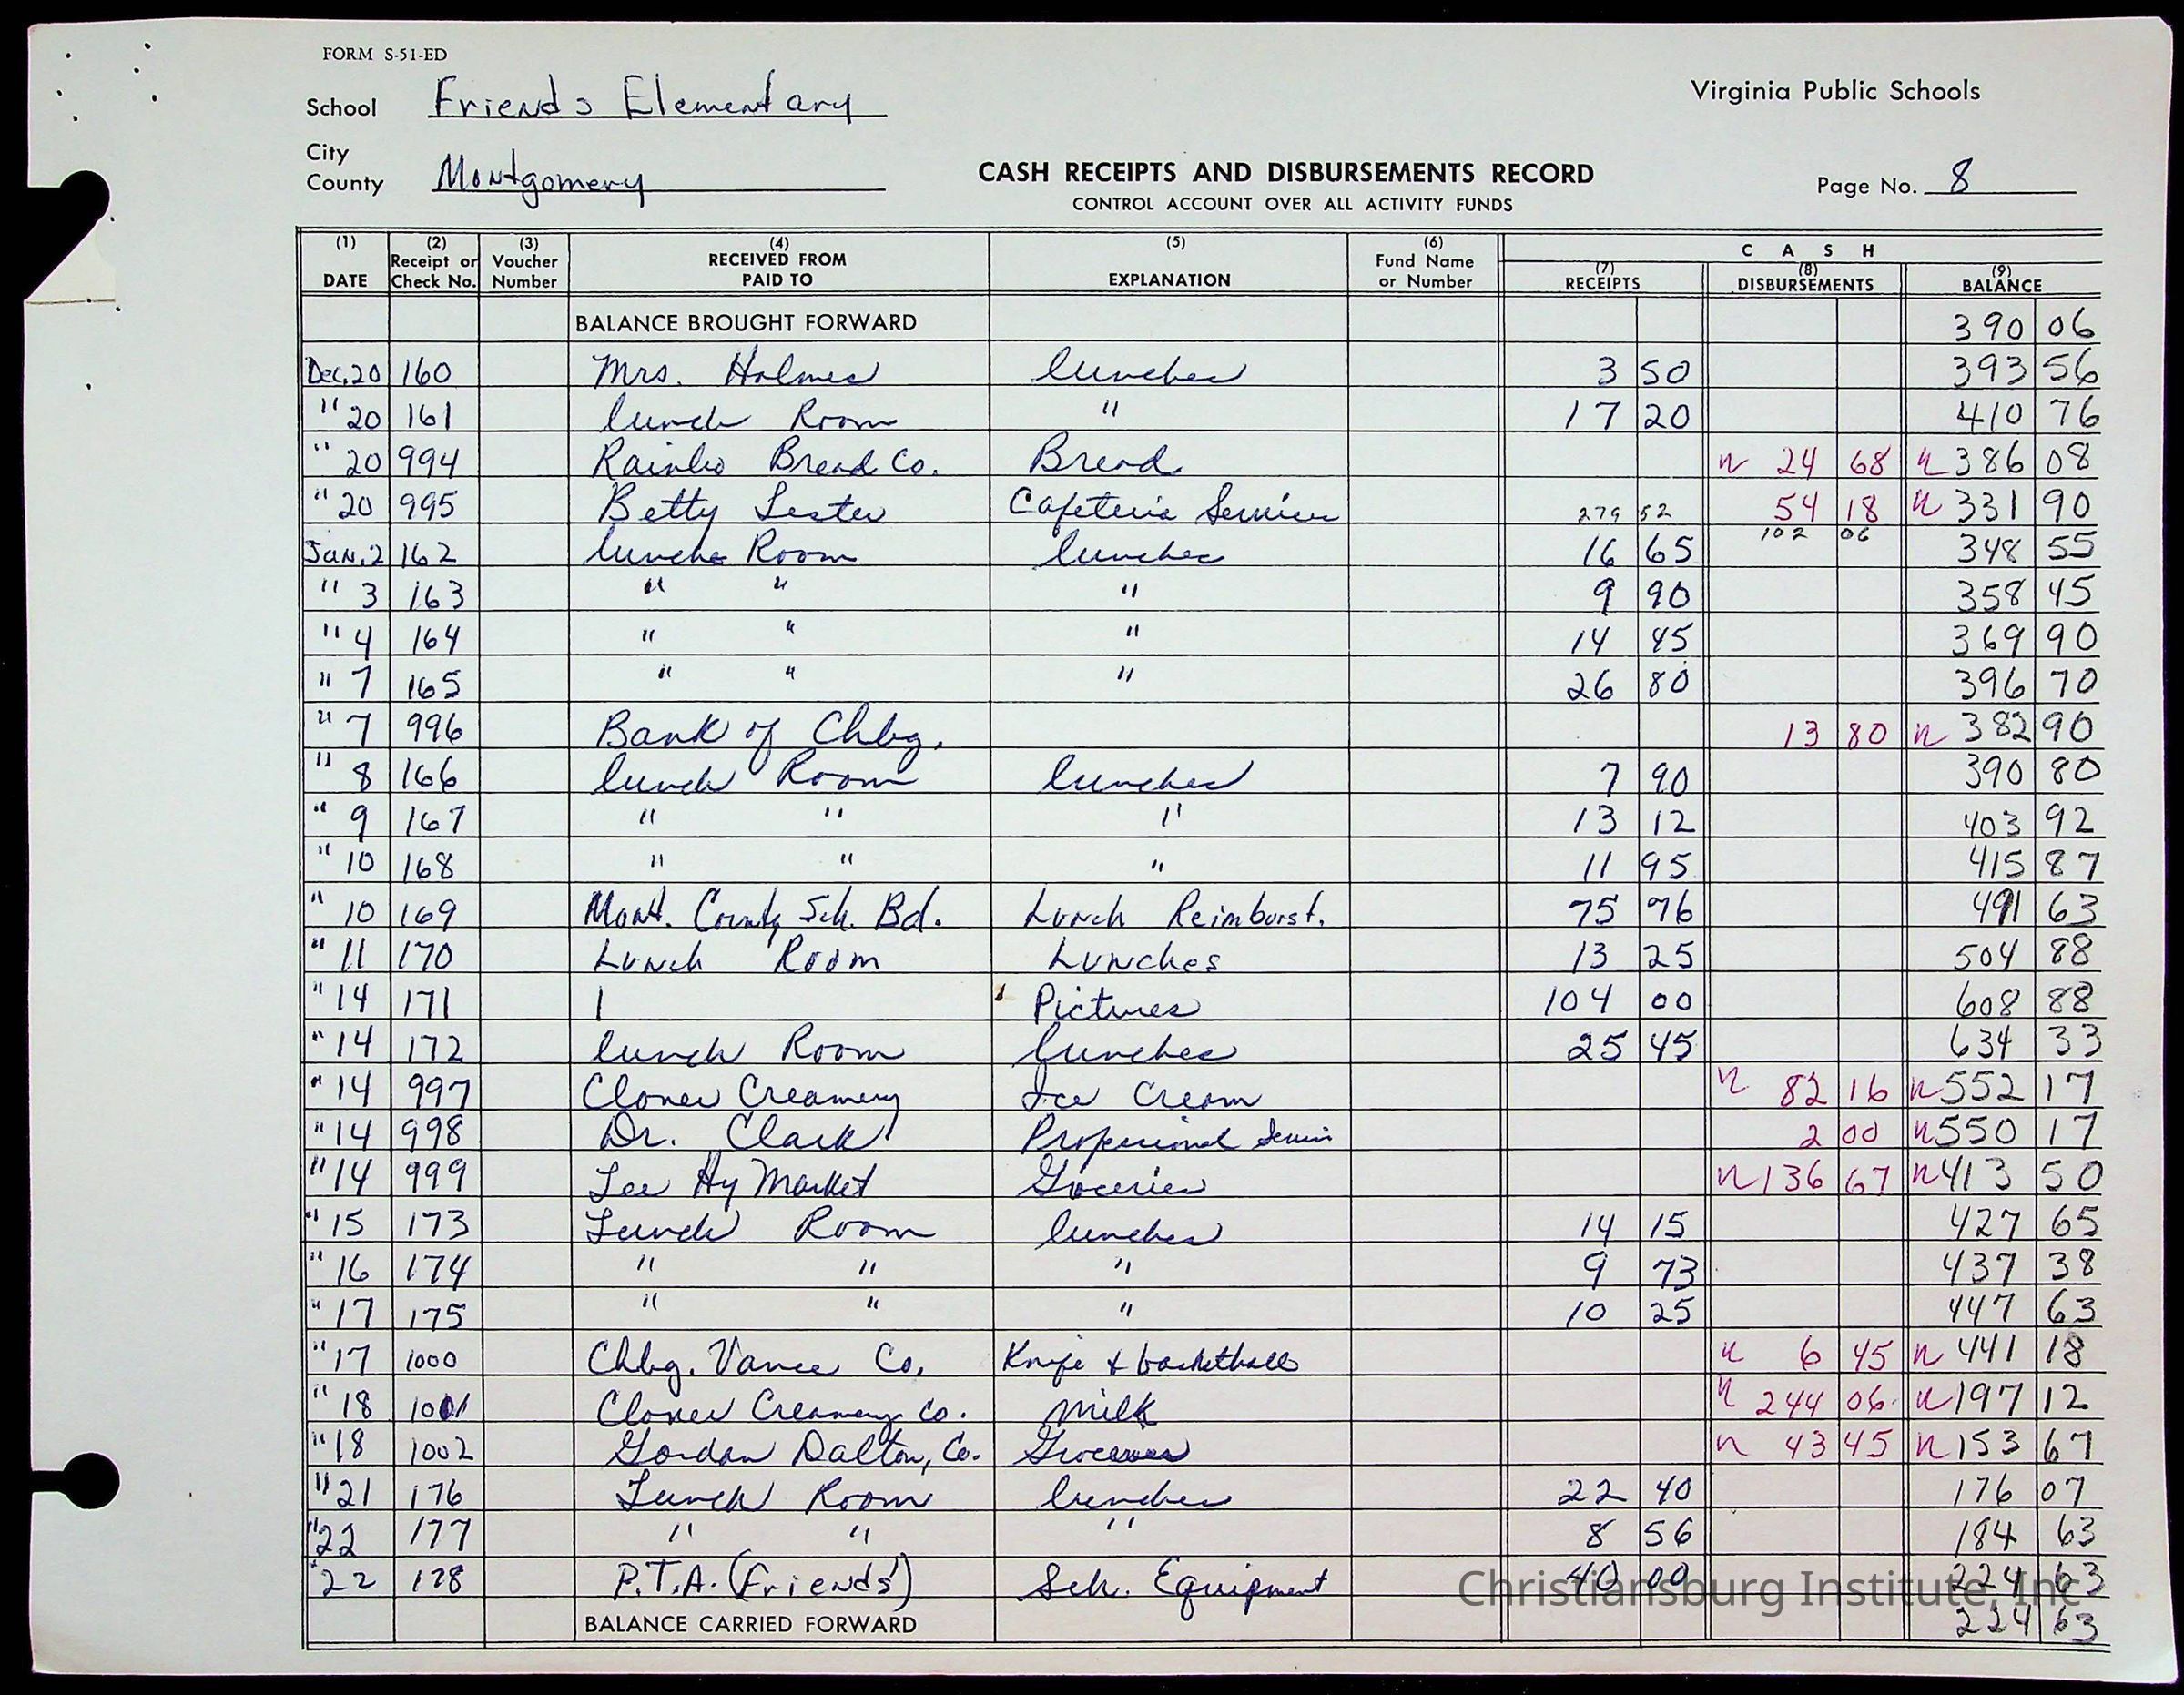 FORM S-51-ED
School Friends Elementary
Virginia Public Schools
City
County Montgomery
CASH RECEIPTS AND DISBURSEMENTS RECORD
CONTROL ACCOUNT OVER ALL ACTIVITY FUNDS
Page No. 8
(1) DATE (2) Receipt or Check No. (3) Voucher Number (4) RECEIVED FROM PAID TO (5) EXPLANATION (6) Fund Name or Number CASH (7) RECEIPTS (8) DISBURSEMENTS (9) BALANCE
BALANCE BROUGHT FORWARD 390 06
Dec. 20 160 Mrs. Holmes lunches 3 50 393 56
" 20 161 lunch Room " 17 20 410 76
" 20 994 Rainbo Bread Co. Bread 24 68 386 08
" 20 995 Betty Lester Cafeteria Services 279 52 54 18 331 90
Jan. 2 162 lunch Room lunches 16 65 102 06 348 55
" 3 163 " " " 9 90 358 45
" 4 164 " " " 14 45 369 90
" 7 165 " " " 26 80 396 70
" 7 996 Bank of Chbg. 13 80 382 90
" 8 166 lunch Room lunches 7 90 390 80
" 9 167 " " " 13 12 403 92
" 10 168 " " " 11 95 415 87
" 10 169 Mont. County Sch. Bd. Lunch Reimburst. 75 76 491 63
" 11 170 Lunch Room Lunches 13 25 504 88
" 14 171 Pictures 104 00 608 88
" 14 172 lunch Room lunches 25 45 634 33
" 14 997 Clover Creamery Ice Cream 82 16 552 17
" 14 998 Dr. Clark Professional 2 00 550 17
" 14 999 Lee Hy Market Groceries 136 67 413 50
" 15 173 Lunch Room lunches 14 15 427 65
" 16 174 " " " 9 73 437 38
" 17 175 " " " 10 25 447 63
" 17 1000 Chbg. Vance Co. Knife & basketball 6 45 441 18
" 18 1001 Clover Creamery Co. Milk 244 06 197 12
" 18 1002 Gordan Dalton, Co. Groceries 43 45 153 67
" 21 176 Lunch Room lunches 22 40 176 07
" 22 177 " " " 8 56 184 63
" 22 178 P.T.A. (Friends) Sch. Equipment 40 00 224 63
BALANCE CARRIED FORWARD 224 63
Christiansburg Institute, Inc